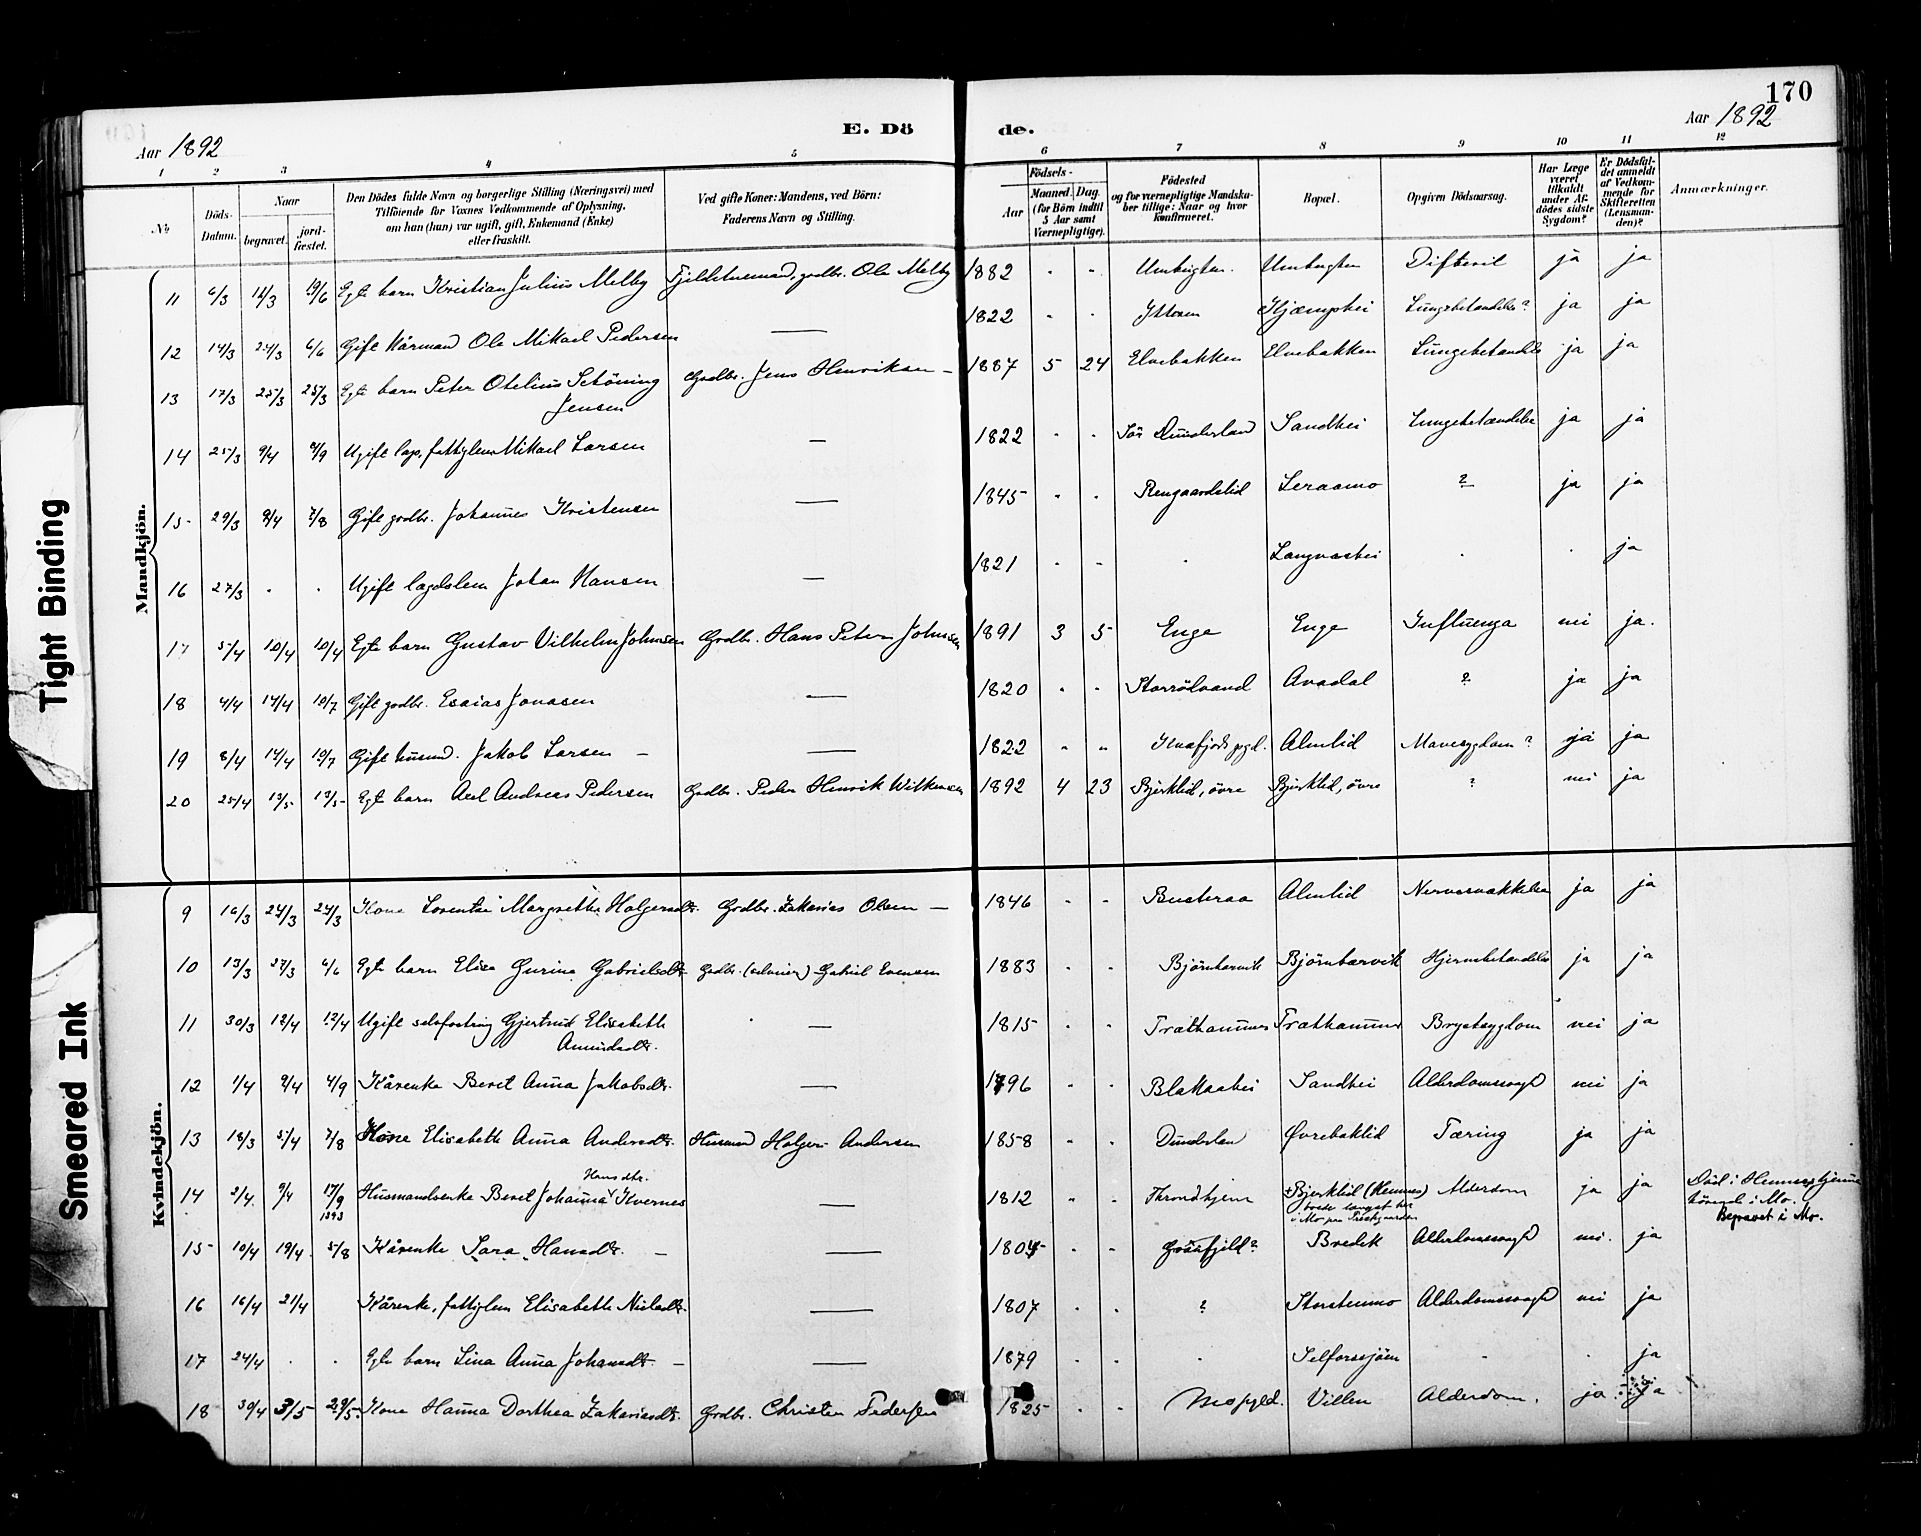 170
Aar 1892
E. Dö
de.
Aar 1892
1 2 3 4 5 6 7 8 9 10 11 12
No
Döds-Datum.
Naar
begravet.
jord-fæstet.
Den Dödes fulde Navn og borgerlige Stilling (Næringsvei) med
Tilföiende for Voxnes Vedkommende af Oplysning,
om han (hun) var ugift, gift, Enkemand (Enke)
eller fraskilt.
Ved gifte Koner: Mandens, ved Börn:
Faderens Navn og Stilling.
Födsels-
Aar
Maaned.
Dag.
(for Börn indtil
5 Aar samt
Værnepligtige).
Födested
og for værnepligtige Mandska-
ber tillige: Naar og hvor
konfirmeret.
Bopæl.
Opgiven Dödsaarsag.
Har Læge
været
tilkaldt
under Af-
dödes sidste
Sygdom?
Er Dödsfal-
det anmeldt
af Vedkom-
mende for
Skifteretten
(Lensman-
den)?
Anmærkninger.
Mandkjön.
11 6/3 12/3 19/6 Egte barn Kristian Julius Melby Fjeldstuemand, grdbr. Ole Melby 1882 " " Umbugten. Umbugten Difterit ja ja
12 14/3 24/3 6/6 Gift Kårmand Ole Mikael Pedersen — 1822 " " Kjæmphei Lungebetændelse? ja ja
13 17/3 25/3 25/3 Egte barn Peter Otelius Schöning Grdbr. Jens Henriksen — 1887 5 24 Elvebakken Elvebakken Lungebetændelse ja ja
Jensen
14 25/3 9/4 4/9 Ugift lægd, fattiglem Mikael Larsen — 1822 " " Sör Dunderland Sandhei Lungebetændelse ja ja
15 29/3 9/4 7/8 Gift grdbr. Johannes Kristensen — 1845 " " Rengaardslid Leraamo ? ja ja
16 27/3 . . Ugift lægdslem Johan Hansen — 1821 " " . Langvashei . . ja
17 5/4 10/4 10/4 Egte barn Gustav Vilhelm Johnsen Grdbr. Hans Peter Johnsen 1891 3 5 Enge Enge Influenza nei ja.
18 4/4 14/4 10/7 Gift grdbr. Esaias Jonasen — 1820 " " Storrölvand Avadal ? ja ja
19 8/4 14/4 10/7 Gift husmd. Jakob Larsen — — 1822 " " Almlid Mavesygdom? ja ja
20 25/4 13/5 13/5 Egte barn Axel Andreas Pedersen Grdbr. Peder Henrik Wilkensen 1892 4 23 Bjerklid, övre Bjerklid, övre ? nei ja
Kvindekjön.
9 16/3 24/3 24/3 Kone Lorentze Margrethe Holgersdtr. Grdbr. Zakarias Olsen — 1846 " " Busteraa Almlid Nervesvækkelse ja ja
10 13/3 27/3 6/6 Egte barn Elise Gurina Gabrielsdtr. Grdbr. (selveier) Gabriel Evensen 1883 " " Björnbærvik Björnbærvik Hjernebetændelse ja ja
11 30/3 12/4 12/4 Ugift selvfostring Gjertrud Elisabeth — 1815 " " Træthammer Træthammer Brystsygdom nei ja
Amundsdtr.
12 1/4 9/4 4/9 Kårenke Beret Anna Jakobsdtr. — 1796 " " Blakaahei Sandhei Alderdomssvagh. nei ja
13 18/3 5/4 7/8 Kone Elisabeth Anna Andersdtr. Husmand Holger Andersen 1858 " " Dunderlan Övrebaklid Tæring ja ja
Hansdtr.
14 2/4 9/4 17/9 1893 Husmandsenke Beret Johanna Kvernes — 1812 " " Throndhjem Bjerklid (Hemnes) Alderdom ja ja Död i Hemnes, hjemme-
i Mo paa Prestgaarden
hörende i Mo.
Begravet i Mo.
15 10/4 19/4 5/8 Kårenke Sara Hansdtr. — — 1804 " " Graafjeld? Bredek Alderdomssvagh nei. ja
16 16/4 21/4 Kårenke, fattiglem Elisabeth Nielsdtr. — 1807 " " ? Storstenmo Alderdomssvagh nei ja
17 24/4 . . Egte barn Lina Anna Johansdtr — — 1879 " " . Selforssjöen . . ja
18 30/4 3/5 29/5 Kone Hanna Dorthea Zakariasdtr. Grdbr. Christen Pedersen 1825 " " Mo pgld. Villen Alderdom. ja ja
Tight Binding
Smeared Ink